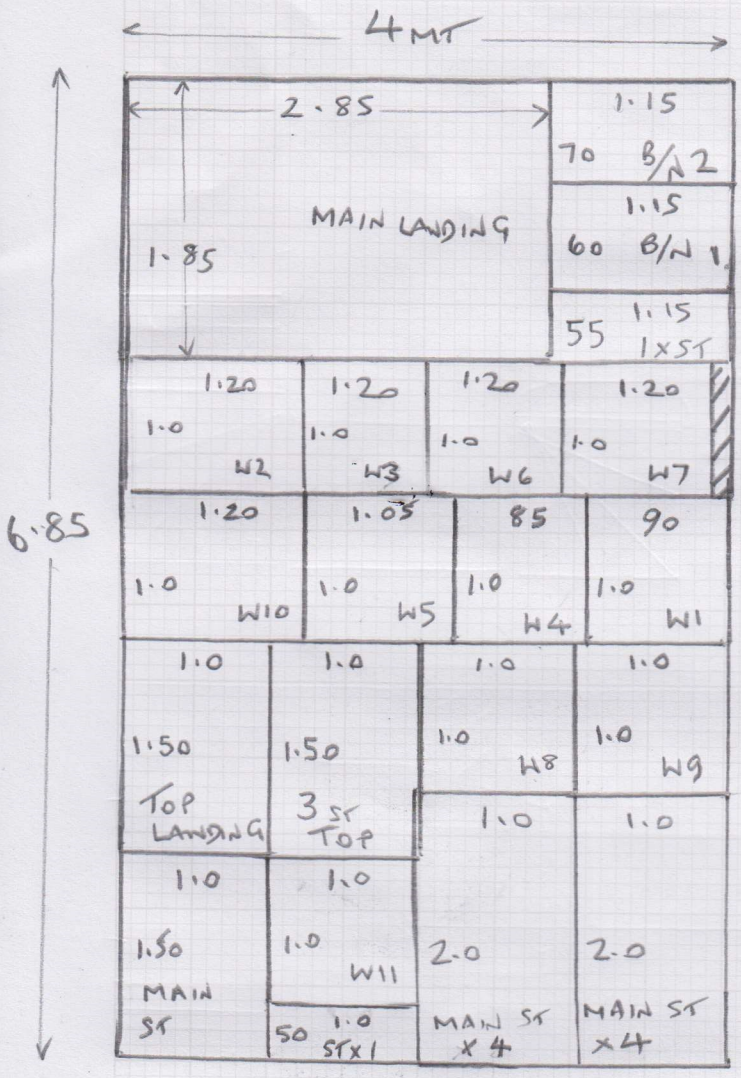 4 MT
2.85
1.15
70 B/N 2
MAIN LANDING
1.15
60 B/N 1
1.85
1.15
55 1 x ST
1.20
1.0
W2
1.20
1.0
W3
1.20
1.0
W6
1.20
1.0
W7
6.85
1.20
1.0
W10
1.05
1.0
W5
85
1.0
W4
90
1.0
W1
1.0
1.50
TOP
LANDING
1.0
1.50
3 ST
TOP
1.0
1.0
W8
1.0
1.0
W9
1.0
1.50
MAIN
ST
1.0
1.0
W11
1.0
50 ST x 1
1.0
2.0
MAIN ST
x 4
1.0
2.0
MAIN ST
x 4